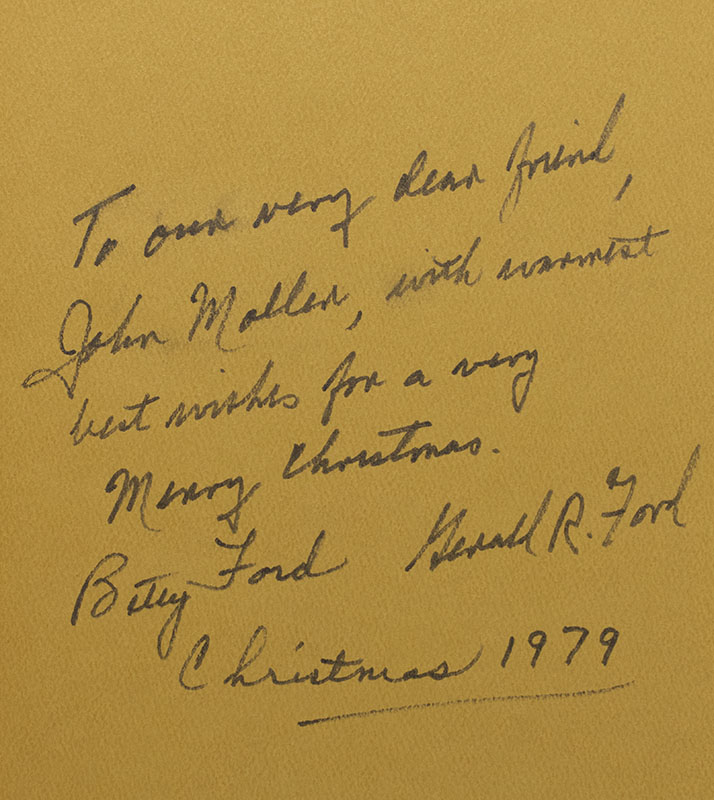 To our very dear friend,
John Moller, with warmest
best wishes for a very
Merry Christmas.
Betty Ford Gerald R. Ford
Christmas 1979